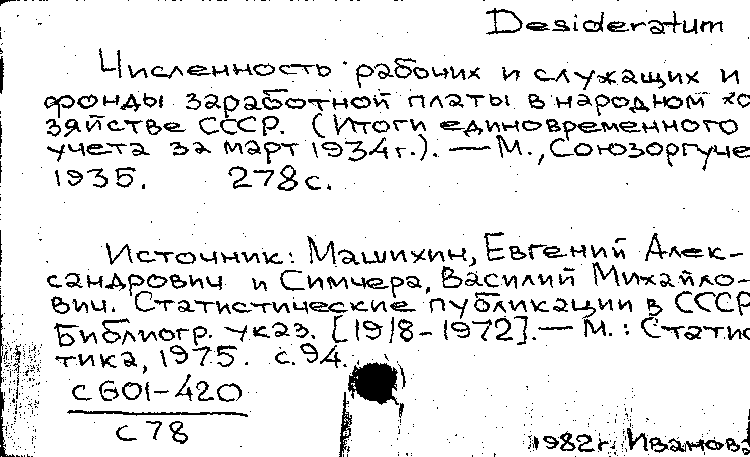 Desideratum
Численность рабочих и служащих и
фонды заработной платы в народном хо
зяйстве СССР. (Итоги единовременного
учета за март 1934г.). — М., Союзоргуче
1935. 278с.
Источник: Машихин, Евгений Алек-
сандрович и Симчера, Василий Михайло-
вич. Статистические публикации в СССР
Библиогр. указ. [1918-1972]. — М. : Статис
тика, 1975. с.94.
с601-420
с78
1982г. Иванова